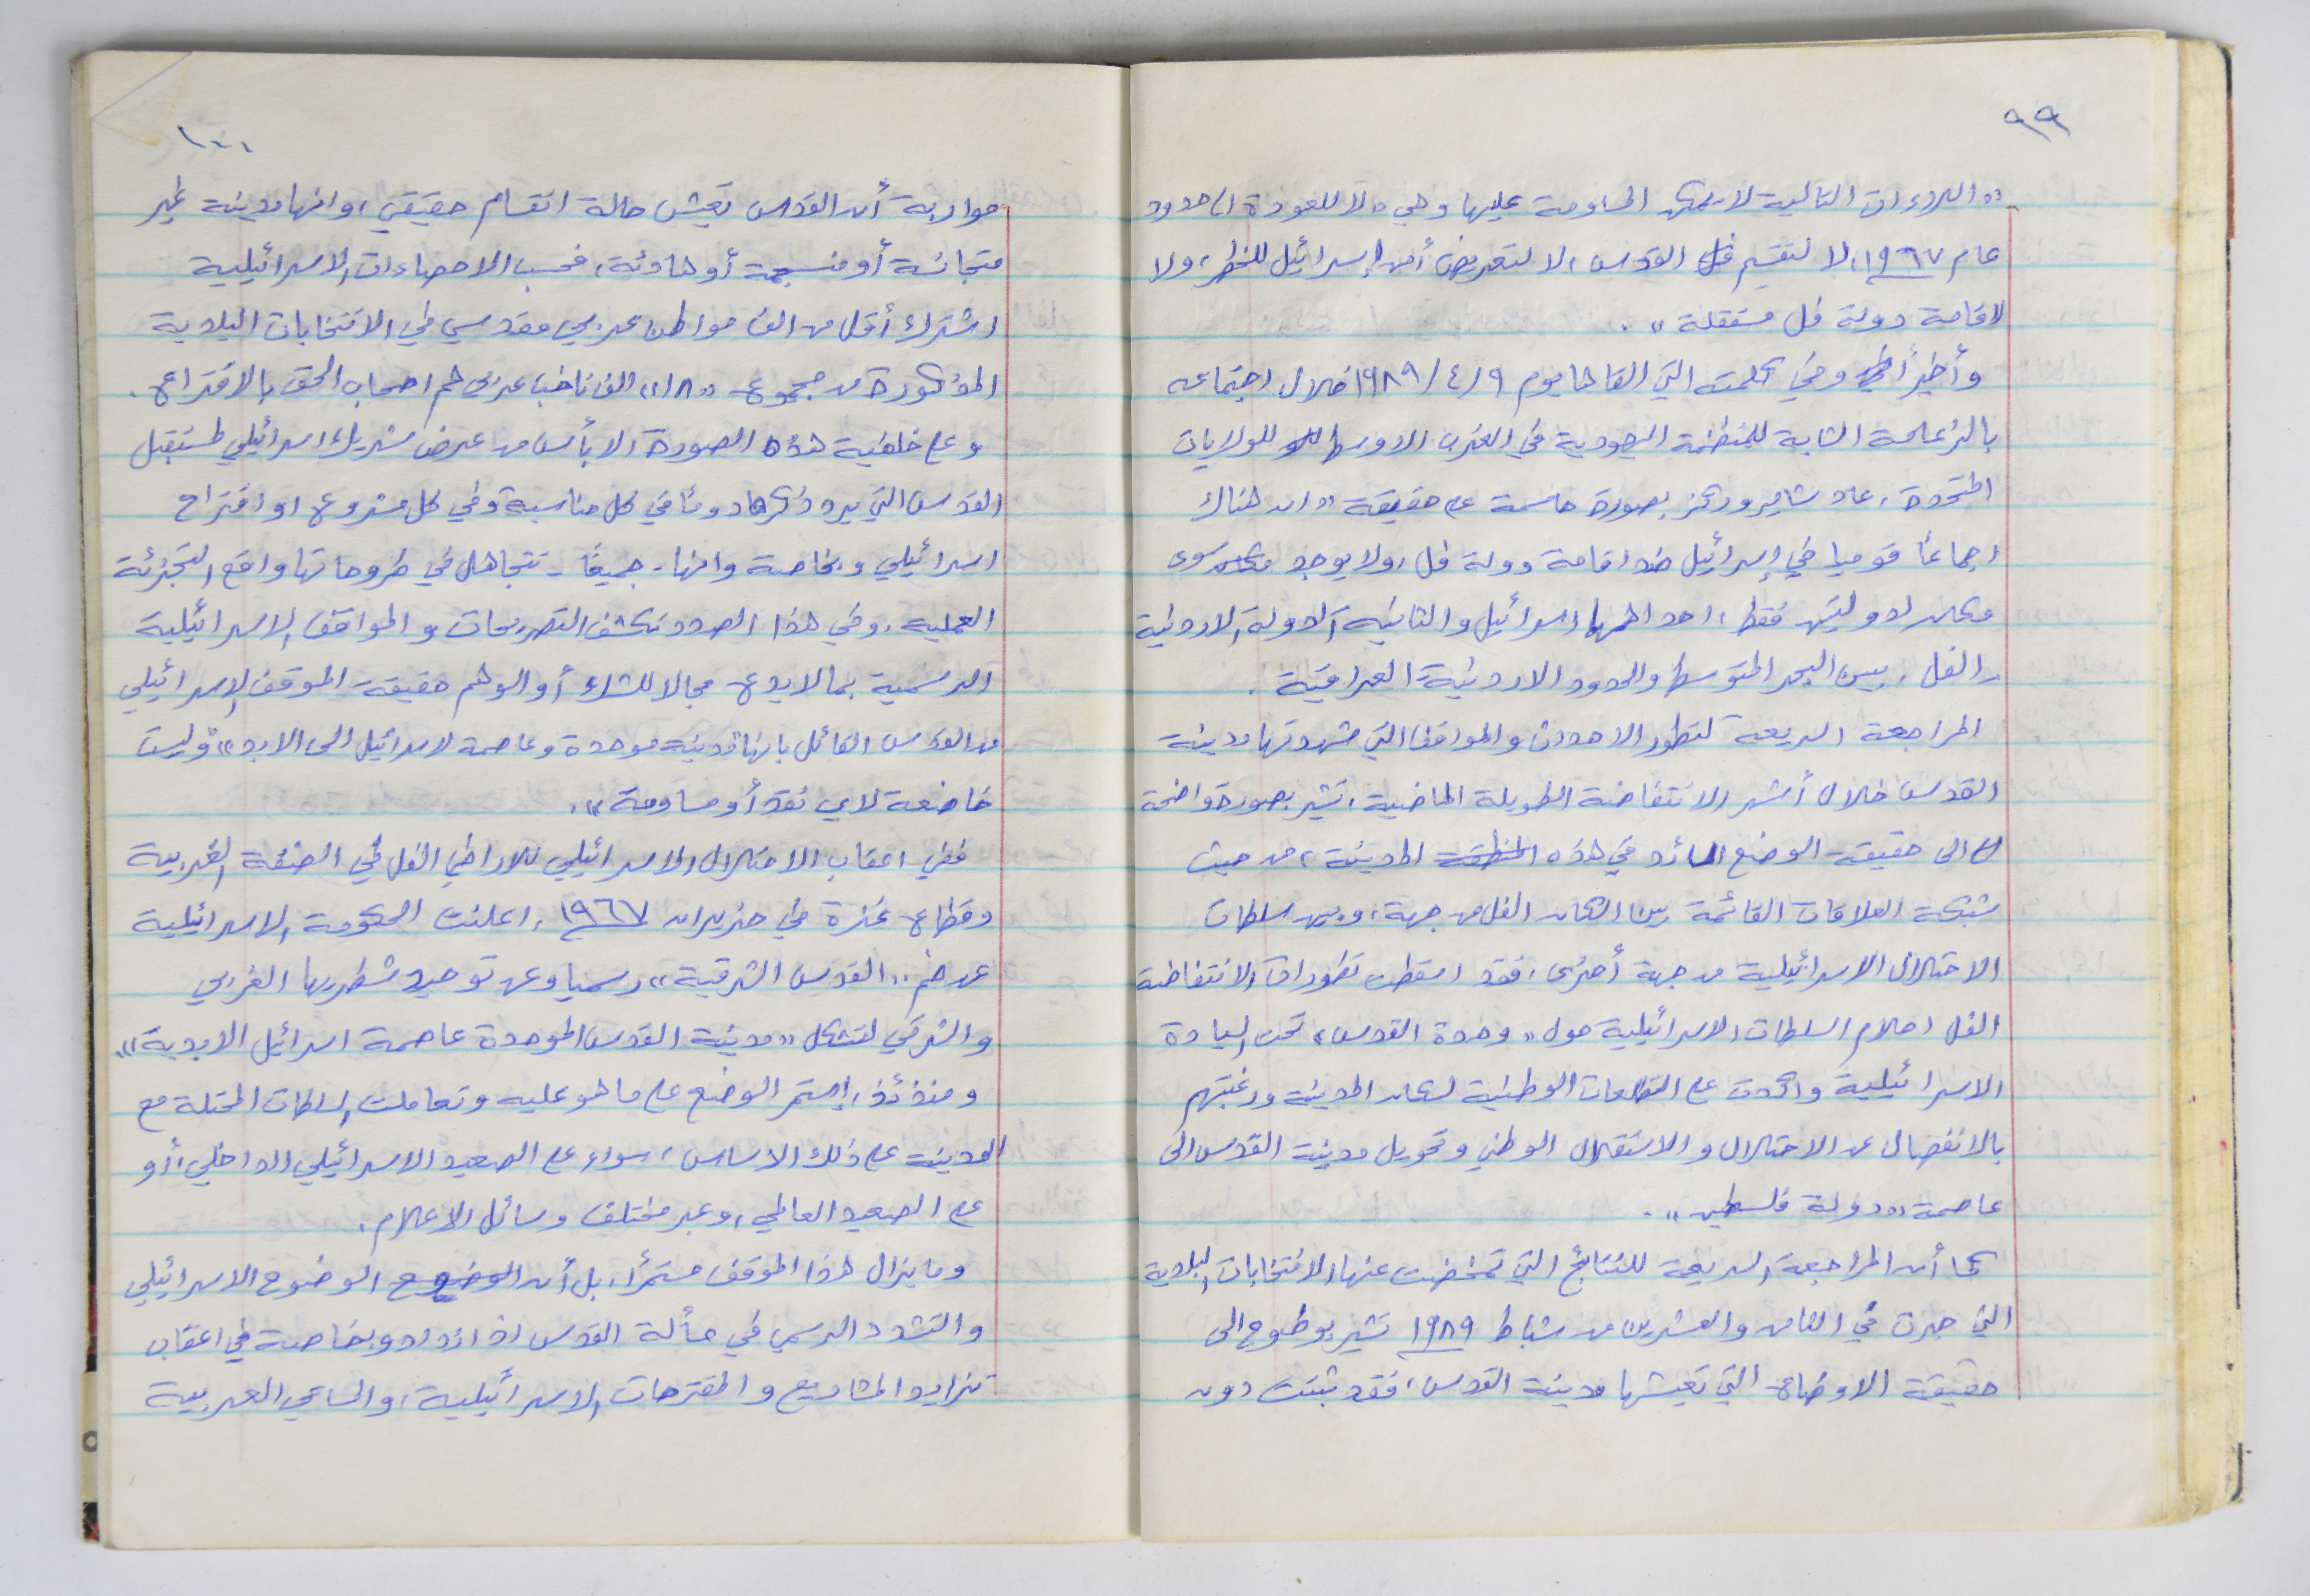 ٩٩
«اللاءات التالية لا يمكن المساومة عليها وهي «لا للعودة الى حدود
عام ١٩٦٧، لا لتقسيم القدس، لا لتعريض أمن إسرائيل للخطر، ولا
لاقامة دولة فل مستقلة».
وأخيراً وفي كلمته التي القاها يوم ٩/٤/١٩٨٩ خلال اجتماعه
بالزعامة الشابة للمنظمة اليهودية في الغرب الاوسط للولايات
المتحدة، عاد شامير وركز بصورة حاسمة على حقيقة «ان هناك
اجماعاً قوميا في إسرائيل ضد اقامة دولة فل، ولا يوجد سوى
مكان لدولتين فقط، احداهما اسرائيل والثانية الدولة الاردنية
الفل، بين البحر المتوسط والحدود الاردنية العراقية.
المراجعة السريعة لتطور الاحداث والمواقف التي شهدتها مدينة
القدس خلال أشهر الانتفاضة الطويلة الماضية، تشير بصورة واضحة
الى حقيقة الوضع السائد في هذه المنطقة المدينة، من حيث
شبكة العلاقات القائمة بين السكان الفل من جهة، وبين سلطات
الاحتلال الاسرائيلية من جهة أخرى، فقد اسقطت تطورات الانتفاضة
الفل احلام السلطات الاسرائيلية حول «وحدة القدس» تحت السيادة
الاسرائيلية واكدت على التطلعات الوطنية لسكان المدينة ورغبتهم
بالانفصال عن الاحتلال والاستقلال الوطني وتحويل مدينة القدس الى
عاصمة «دولة فلسطين».
كما أن المراجعة السريعة للنتائج التي تمخضت عنها الانتخابات البلدية
التي جرت في الثامن والعشرين من شباط ١٩٨٩ تشير بوضوح الى
حقيقة الاوضاع التي تعيشها مدينة القدس، فقد ثبتت دون
١٠٠
مواربة أن القدس تعيش حالة انقسام حقيقي، وانها مدينة غير
متجانسة أو منسجمة أو هادئة، فحسب الاحصاءات الاسرائيلية
اشترك أقل من الف مواطن عربي مقدسي في الانتخابات البلدية
المذكورة من مجموع «١٨» الف ناخب عربي هم اصحاب الحق بالاقتراع.
وعلى خلفية هذه الصورة لا بأس من عرض شريط اسرائيلي لمستقبل
القدس التي يرد ذكرها دوماً في كل مناسبة وفي كل مشروع او اقتراح
اسرائيلي وبخاصة وانها - جميعاً - تتجاهل في طروحاتها واقع التجزئة
العملية، وفي هذا الصدد تكشف التصريحات والمواقف الاسرائيلية
الرسمية بما لا يدع مجالا للشك أو الوهم حقيقة الموقف الاسرائيلي
من القدس القائل بانها «مدينة موحدة وعاصمة لاسرائيل الى الابد» و«ليست
خاضعة لاي نقد أو مساومة».
ففي اعقاب الاحتلال الاسرائيلي للاراضي الفل في الضفة الغربية
وقطاع غزة في حزيران ١٩٦٧، اعلنت الحكومة الاسرائيلية
عن ضم «القدس الشرقية» رسميا وعن توحيد شطريها الغربي
والشرقي لتشكل «مدينة القدس الموحدة عاصمة اسرائيل الابدية»،
ومنذئذ، إستمر الوضع على ما هو عليه وتعاملت السلطات المحتلة مع
المدينة على ذلك الاساس، سواء على الصعيد الاسرائيلي الداخلي، أو
على الصعيد العالمي، وعبر مختلف وسائل الاعلام.
وما يزال هذا الموقف مستمراً، بل أن الوضوح الوضوح الاسرائيلي
والتشدد الرسمي في مسألة القدس اذ ازداد وبخاصة في اعقاب
تزايد المشاريع والمقترحات الاسرائيلية، والمساعي العربية